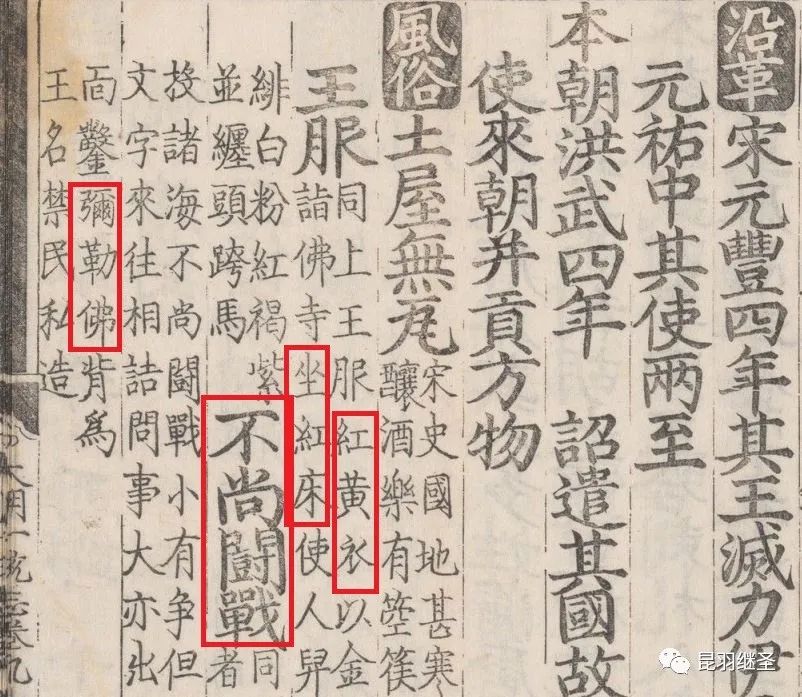 沿革 宋元豐四年其王滅力伊
元祐中其使兩至
本朝洪武四年 詔遣其國故
使來朝并貢方物
風俗 土屋無瓦
宋史國地甚寒
釀酒樂有箜篌
王服
同上王服紅黃衣以金
詣佛寺坐紅床使人舁
緋白粉紅褐紫
並纏頭跨馬
不尚闘戰
同
者
投諸海不尚闘戰小有争但
文字來往相詰問事大亦出
面鑿彌勒佛背爲
王名禁民私造
大明一統志卷九
昆羽继圣